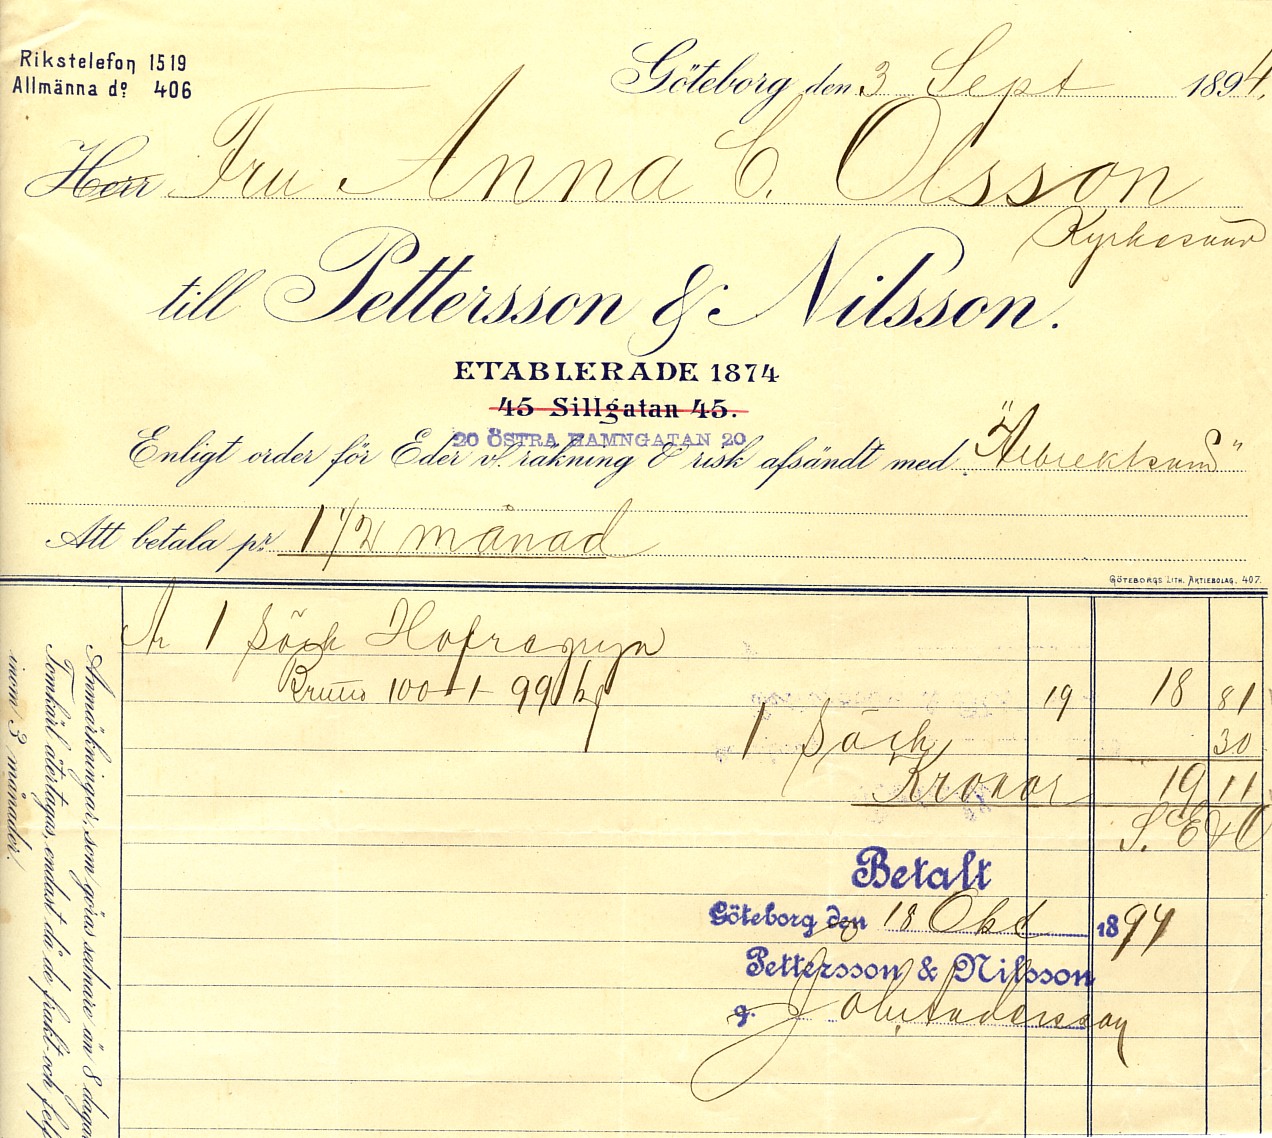 Rikstelefon 1519
Allmänna dº 406
Göteborg den 3 Sept 1894.
Herr Fru Anna C. Olsson
till Pettersson & Nilsson.
ETABLERADE 1874
45 Sillgatan 45.
20 ÖSTRA HAMNGATAN 20
Enligt order för Eder v/. räkning & risk afsändt med
Att betala pr. 1 1/2 månad
GÖTEBORGS LITH. AKTIEBOLAG. 407.
1 Säck
Brutto 100-1-99 kg 19 18 81
1 Säck 30
Kronor 19 11
S. E & O
Betalt
Göteborg den 18 Okt 1894
Pettersson & Nilsson
g. Joh. Andersson
Anmärkningar, som göras sednare än 8 dagar
Tomkärl återtagas, endast då de frakt- och
inom 3 månader.